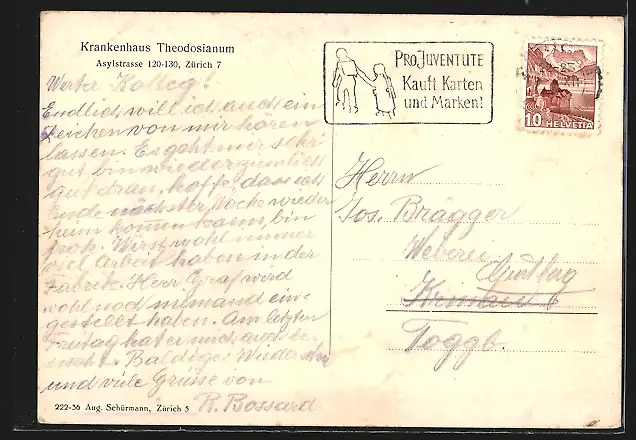 Krankenhaus Theodosianum
Asylstrasse 120-130, Zürich 7
Werter Kolleg!
Endlich will ich auch ein
Zeichen von mir hören
lassen. Es geht mir sehr
gut bin wieder ziemlich
gut dran, hoffe, dass ich
Ende nächster Woche wieder
heim kommen kann, bin
froh. Wirst wohl immer
viel Arbeit haben in der
Fabrik. Herr Graf wird
wohl noch niemand ein-
gestellt haben. Am letzten
Freitag hat er mich auch be-
sucht. Baldiges Wieder
und viele Grüsse von
R. Bossard
222-36 Aug. Schürmann, Zürich 5
PRO JUVENTUTE
Kauft Karten
und Marken!
10 HELVETIA
Herrn
Jos. Brägger
Weberei
Toggb.